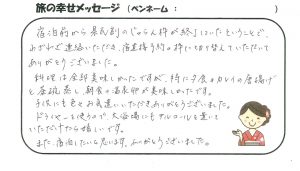 旅の幸せメッセージ (ペンネーム： )
宿泊前から県民割のじゃらん枠が終了していたということで、
わざわざ連絡いただき、宿直接予約の枠に切り替えていただいて
ありがとうございました。
料理は全部美味しかったですが、特に夕食のカレイの唐揚げ
と釜飯、蒸し、朝食の温泉卵が美味しかったです。
子供にも色々お気遣いいただきありがとうございました。
ドライヤーを使うので、大浴場にもアルコールを置いて
いただけたら嬉しいです。
また、宿泊したいと思います。ありがとうございました。